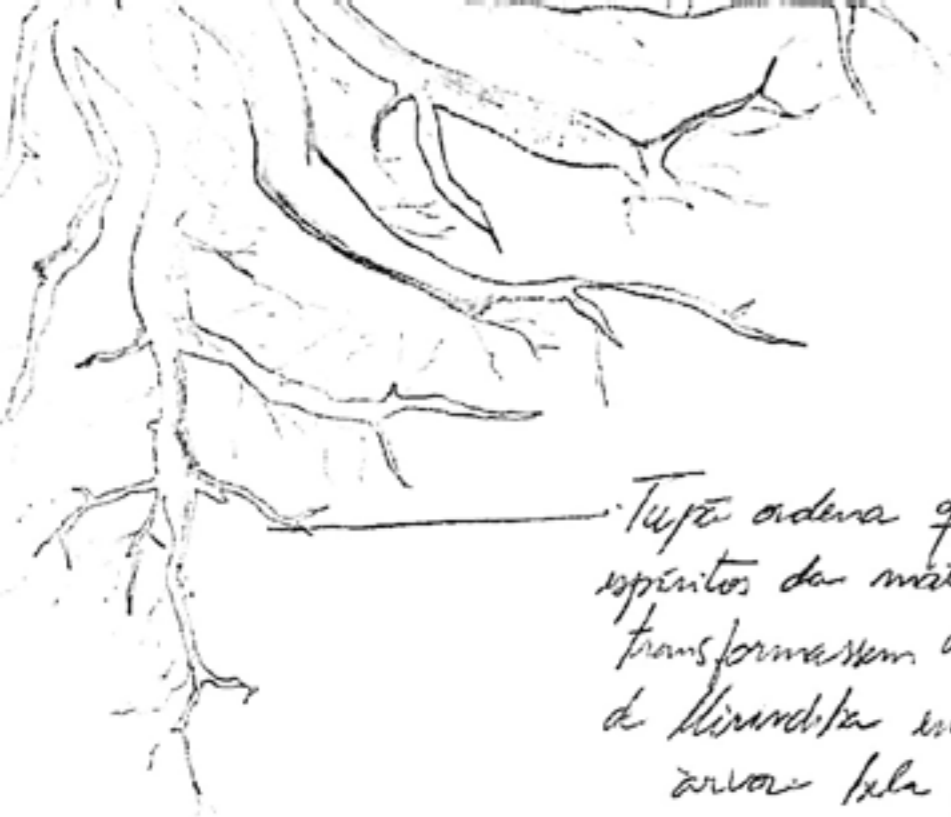 Tupã ordena q
espíritos da mat
transformassem a
de Mirandiba em
árvore bela